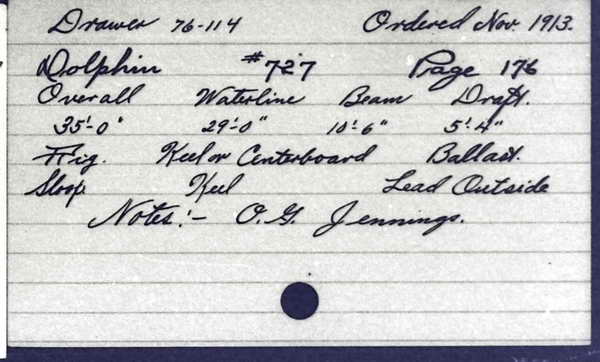 Drawer 76-114 Ordered Nov. 1913.
Dolphin #727 Page 176
Overall Waterline Beam Draft.
35'-0" 29'-0" 10'-6" 5'-4"
Rig. Keel or Centerboard Ballast.
Sloop Keel Lead Outside
Notes:- O. G. Jennings.